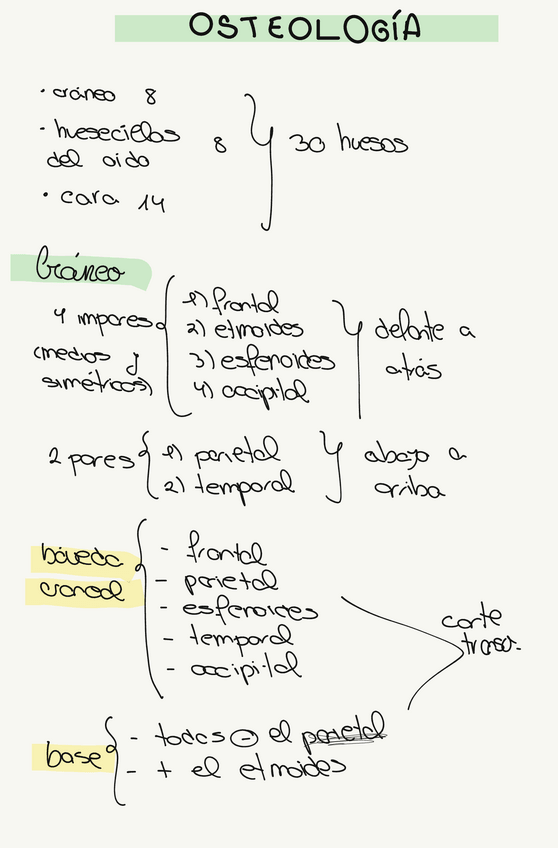 OSTEOLOGÍA
· cráneo 8
· huesecillos 8
del oido
· cara 14
30 huesos
Cráneo
4 impares
(medios y
simétricos)
1) frontal
2) etmoides
3) esfenoides
4) occipital
delante a
atrás
2 pares
1) parietal
2) temporal
abajo a
arriba
bóveda
craneal
- frontal
- parietal
- esfenoides
- temporal
- occipital
corte
transv.
base
- todos ⊖ el parietal
- + el etmoides